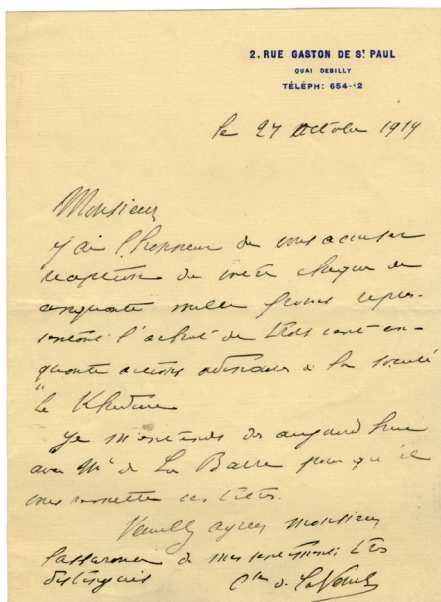 2, RUE GASTON DE ST PAUL
QUAI DEBILLY
TÉLÉPH: 654-
le 27 octobre 1919
Monsieur
j'ai l'honneur de vous accuser
réception de votre chèque de
cinquante mille francs repré-
sentant l'achat de trois cent cin-
quante actions ordinaires de la société
"le Khedive
Je m'entends dès aujourd'hui
avec Mr de La Barre pour qu'il
vous remette ces titres.
Veuillez agréer monsieur
l'assurance de mes sentiments très
distingués
Cte de